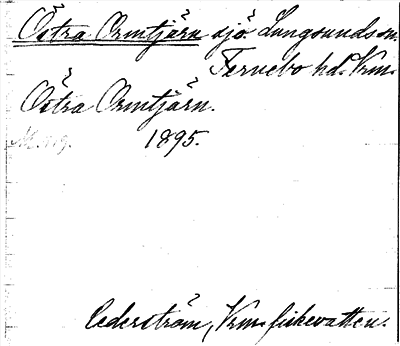 Östra Ormtjärn sjö Lungsunds sn.
Fernebo hd. Vrm.
Östra Ormtjärn.
1895.
Cederström, Vrm. fiskevatten.